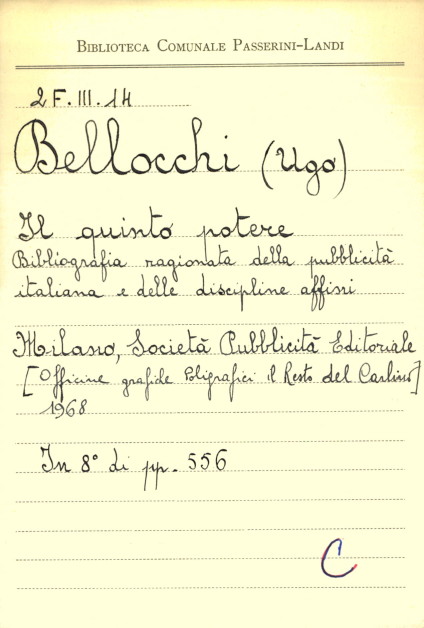 BIBLIOTECA COMUNALE PASSERINI-LANDI
2 F. III. 14
Bellocchi (Ugo)
Il quinto potere
Bibliografia ragionata della pubblicità
italiana e delle discipline affini
Milano, Società Pubblicità Editoriale
[Officine grafiche Poligrafici il Resto del Carlino]
1968
In 8° di pp. 556
C